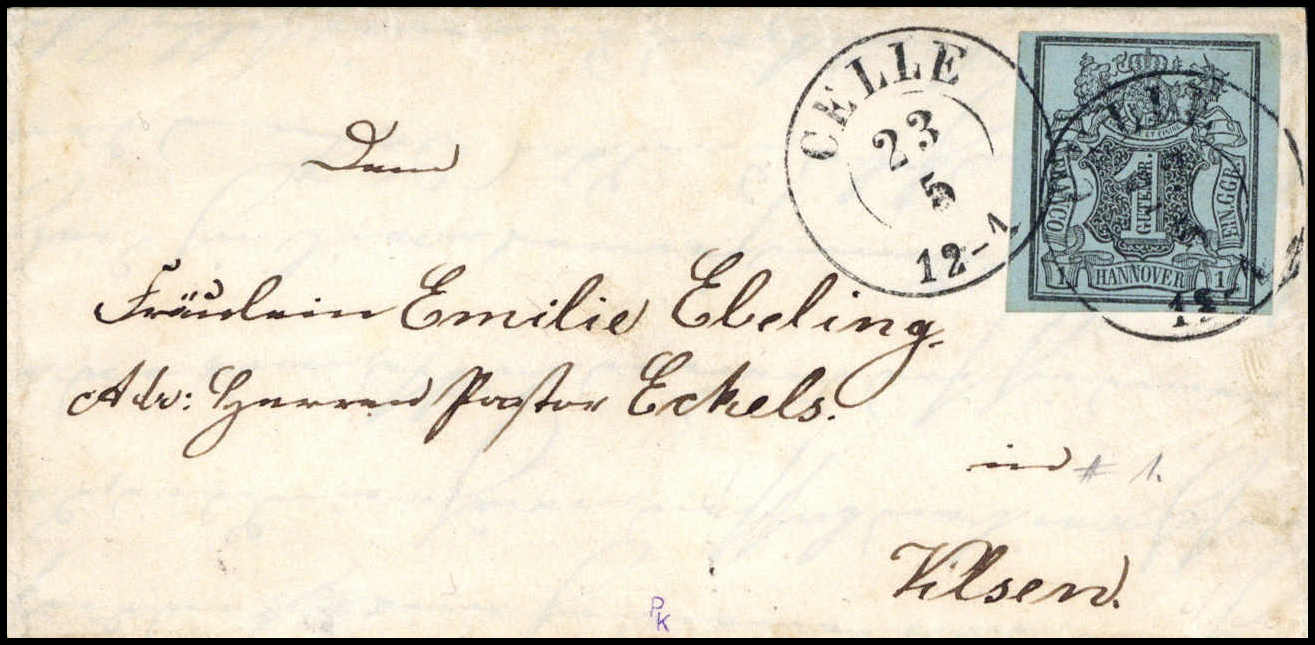 CELLE
23
5
12-1
FRANCO
1
GUTENGR.
EIN.GGR.
1 HANNOVER 1
Dem
Fräulein Emilie Ebeling,
Adr: Herren Pastor Eckels.
in # 1.
Vilsen.
PK